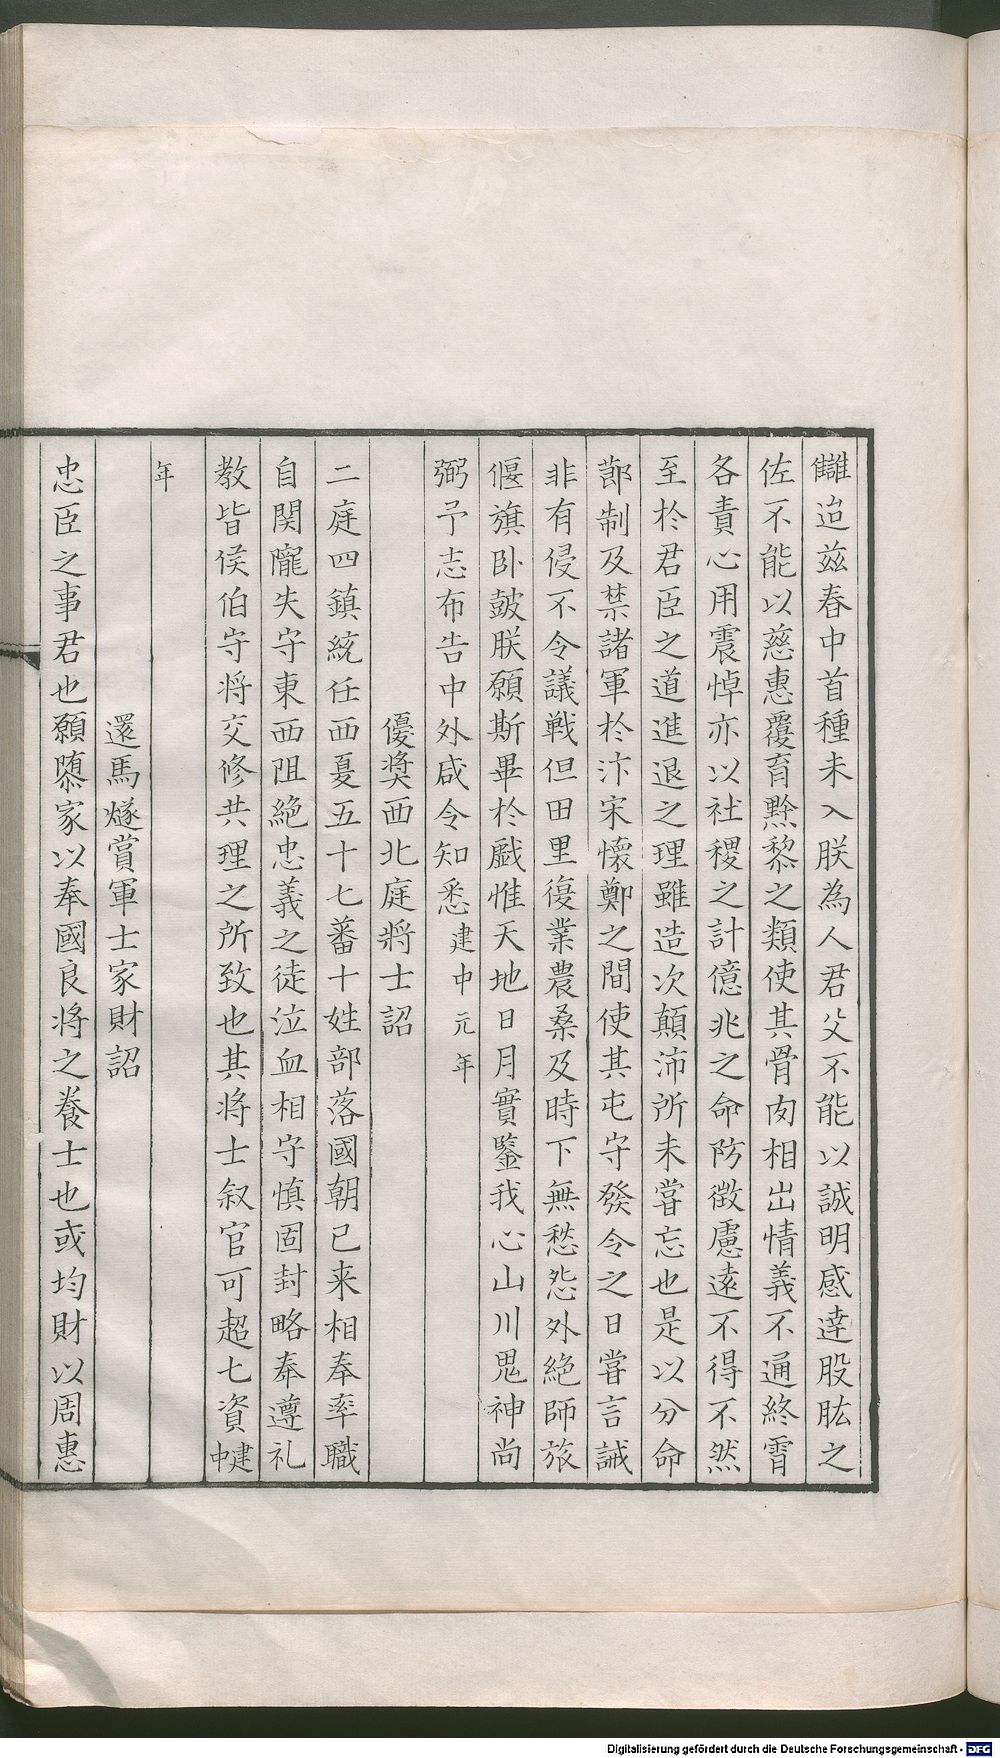 讎迨茲春中首種未入朕為人君父不能以誠明感達股肱之
佐不能以慈惠覆育黔黎之類使其骨肉相出情義不通終霄
各責心用震悼亦以社稷之計億兆之命防微慮遠不得不然
至於君臣之道進退之理雖造次顛沛所未嘗忘也是以分命
鄗制及禁諸軍於汴宋懷鄭之間使其屯守發令之日嘗言誡
非有侵不令議戰但田里復業農桑及時下無愁怨外絕師旅
偃旗卧皷朕願斯畢於戲惟天地日月實鑒我心山川鬼神尚
弼予志布告中外咸令知悉建中元年
優奬西北庭將士詔
二庭四鎮統任西夏五十七蕃十姓部落國朝已来相奉率職
自関隴失守東西阻絕忠義之徒泣血相守慎固封略奉遵礼
教皆侯伯守将交修共理之所致也其将士叙官可超七資建中
年
還馬燧賞軍士家財詔
忠臣之事君也願隳家以奉國良将之養士也或均財以周惠
Digitalisierung gefördert durch die Deutsche Forschungsgemeinschaft - DFG